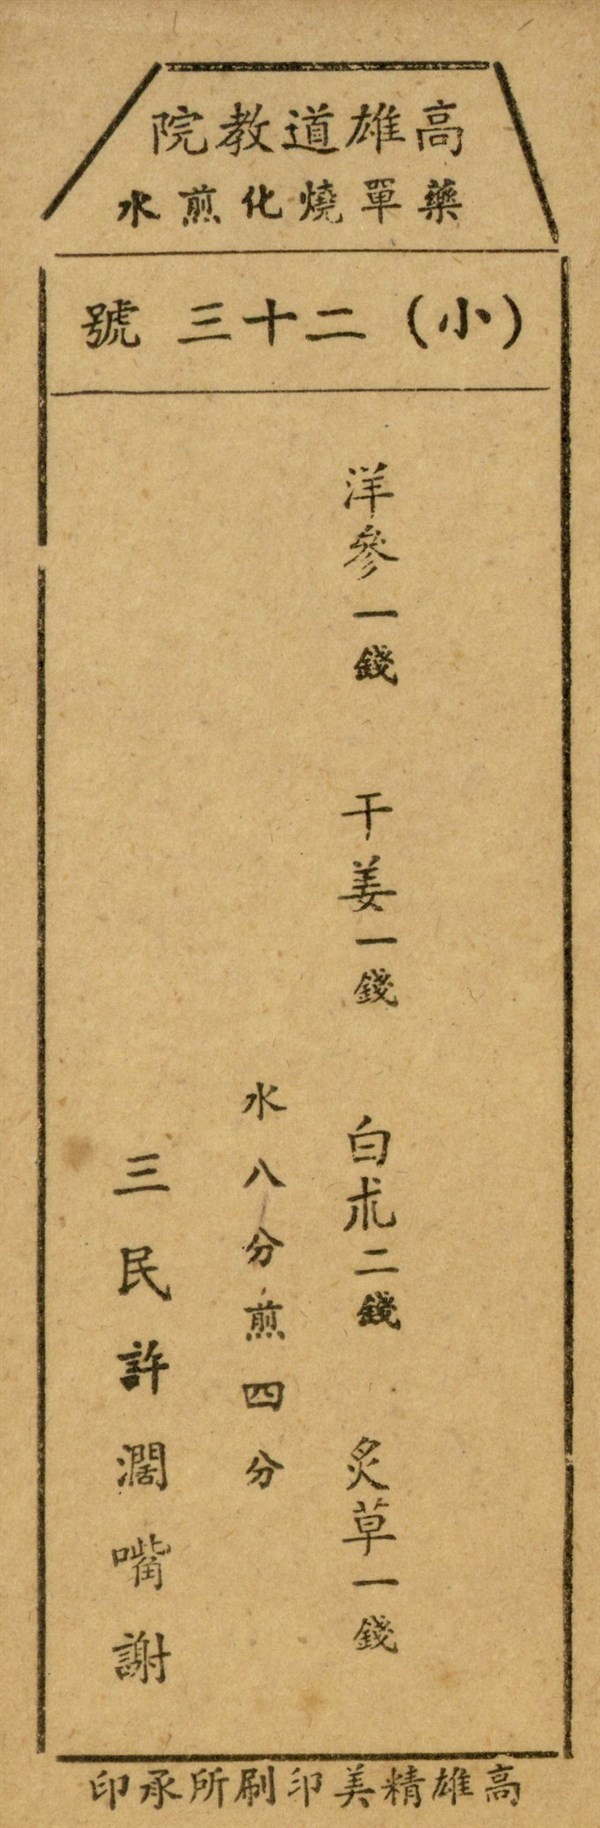 高雄道教院
藥單燒化煎水
(小)二十三號
洋參一錢　干姜一錢　白朮二錢　炙草一錢
水八分煎四分
三民許濶嘴謝
高雄精美印刷所承印